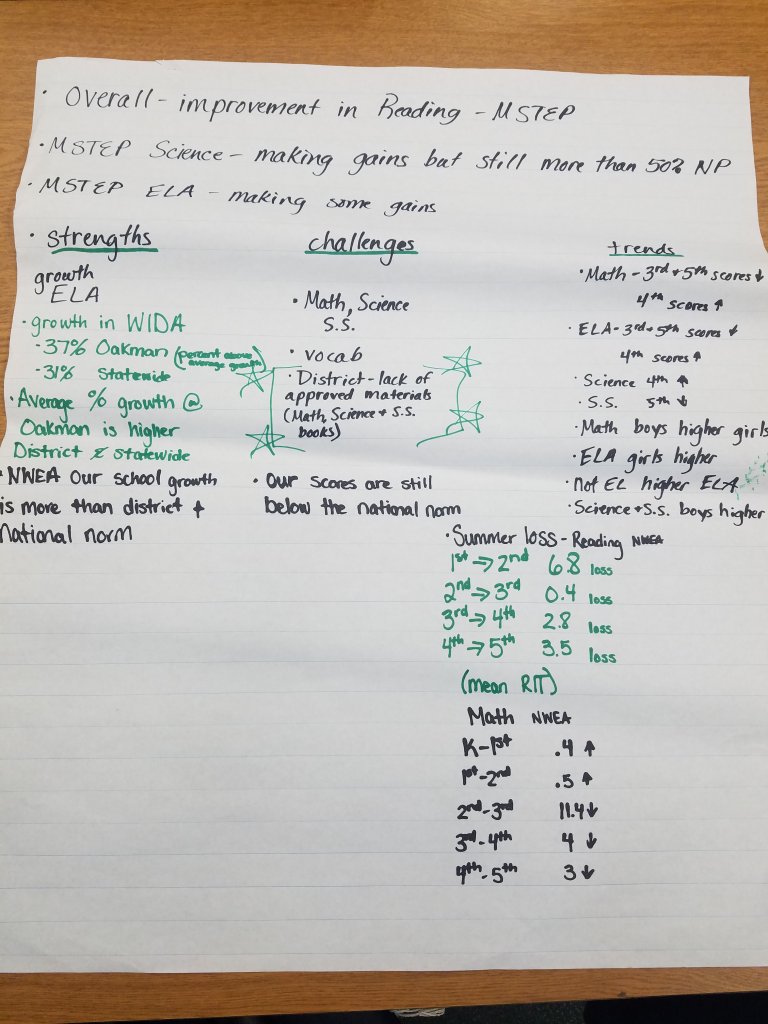 • Overall - improvement in Reading - MSTEP
• MSTEP Science - making gains but still more than 50% NP
• MSTEP ELA - making some gains
• strengths
growth
ELA
• growth in WIDA
- 37% Oakman (percent above average growth)
- 31% Statewide
• Average % growth @
Oakman is higher
District & Statewide
• NWEA Our school growth
is more than district +
National norm
challenges
• Math, Science
S.S.
• vocab
• District - lack of
approved materials
(Math, Science + S.S.
books)
• Our scores are still
below the national norm
trends
• Math - 3rd + 5th scores ↓
4th scores ↑
• ELA - 3rd + 5th scores ↓
4th scores ↑
• Science 4th ↑
• S.S. 5th ↓
• Math boys higher girls
• ELA girls higher
• not EL higher ELA
• Science + S.S. boys higher
• Summer loss - Reading NWEA
1st → 2nd 6.8 loss
2nd → 3rd 0.4 loss
3rd → 4th 2.8 loss
4th → 5th 3.5 loss
(mean RIT)
Math NWEA
K - 1st .4 ↑
1st - 2nd .5 ↑
2nd - 3rd 11.4 ↓
3rd - 4th 4 ↓
4th - 5th 3 ↓